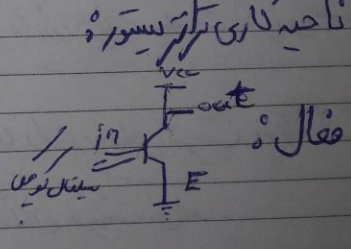 ناحیه کاری ترانزیستور:
Vcc
out
فعال:
in
سیگنال کوچک
E